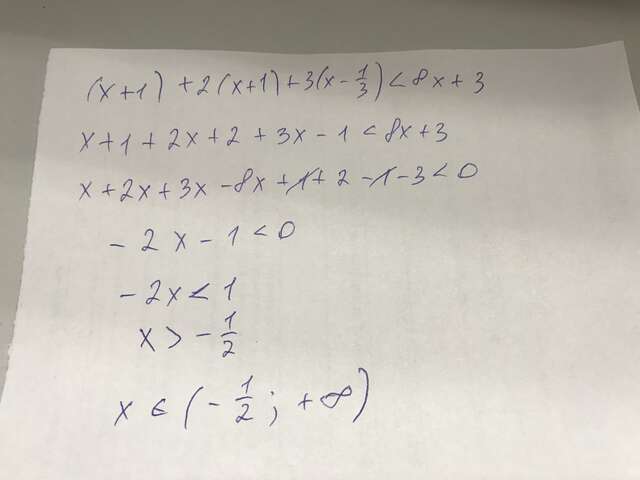 (x+1) + 2(x+1) + 3(x - 1/3) < 8x + 3
x + 1 + 2x + 2 + 3x - 1 < 8x + 3
x + 2x + 3x - 8x + 1 + 2 - 1 - 3 < 0
- 2x - 1 < 0
- 2x < 1
x > - 1/2
x ∈ (- 1/2 ; + ∞)